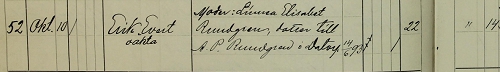 Moder: Linnea Elisabet
52 Okt. 10 Erik Evert Rundgren, dotter till 22 " 14
oäkta A. P. Rundgren o Dahrup 14/6 93 1